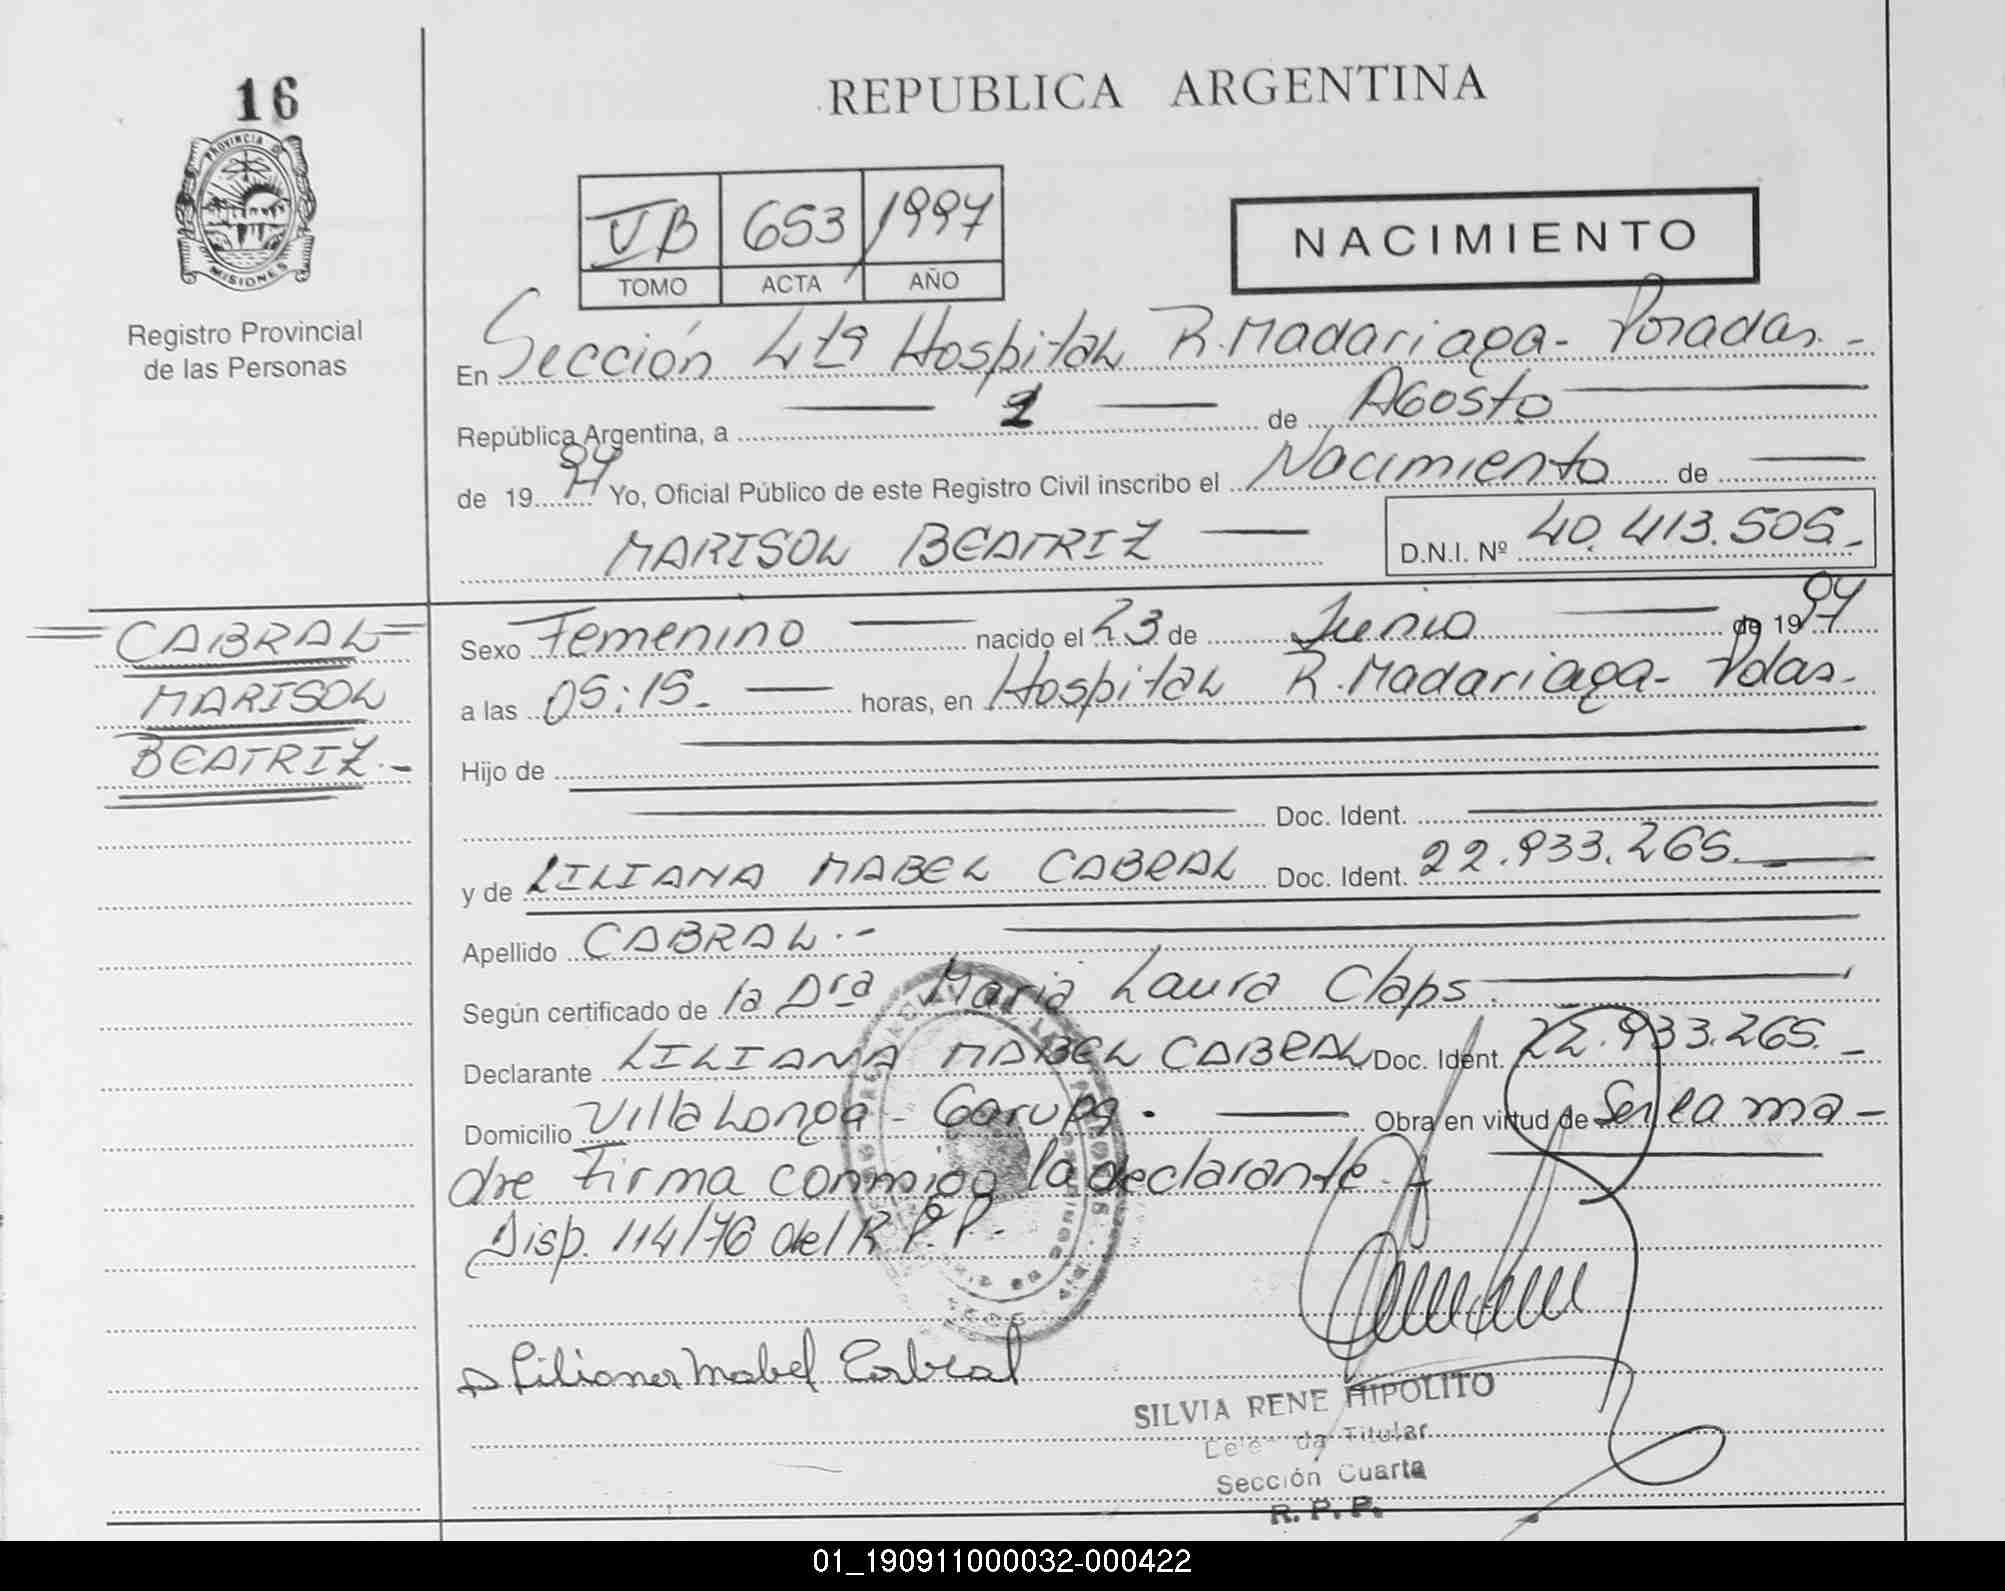 16
REPUBLICA ARGENTINA
PROVINCIA D
MISIONES
Registro Provincial
de las Personas
VB 653 1997
TOMO ACTA AÑO
NACIMIENTO
En Sección 4ta Hospital R. Madariaga - Posadas. -
República Argentina, a de Agosto
de 1997 Yo, Oficial Público de este Registro Civil inscribo el Nacimiento de
MARISOL BEATRIZ D.N.I. Nº 40.413.505.-
CABRAL
MARISOL
BEATRIZ.-
Sexo Femenino nacido el 23 de Junio de 1997
a las 05:15.- horas, en Hospital R. Madariaga - Pdas.
Hijo de
Doc. Ident.
y de LILIANA MABEL CABRAL Doc. Ident. 22.933.265.-
Apellido CABRAL.-
Según certificado de la Dra Maria Laura Claps.
Declarante LILIANA MABEL CABRAL Doc. Ident. 22.933.265.-
Domicilio Villa Longa - Garupa. Obra en virtud de Ser la ma-
dre Firma conmigo la declarante.
Disp. 114/76 del R.P.P.-
Liliana Mabel Cabral
SILVIA RENE HIPOLITO
Titular
Sección Cuarta
R. P. P.
01_190911000032-000422